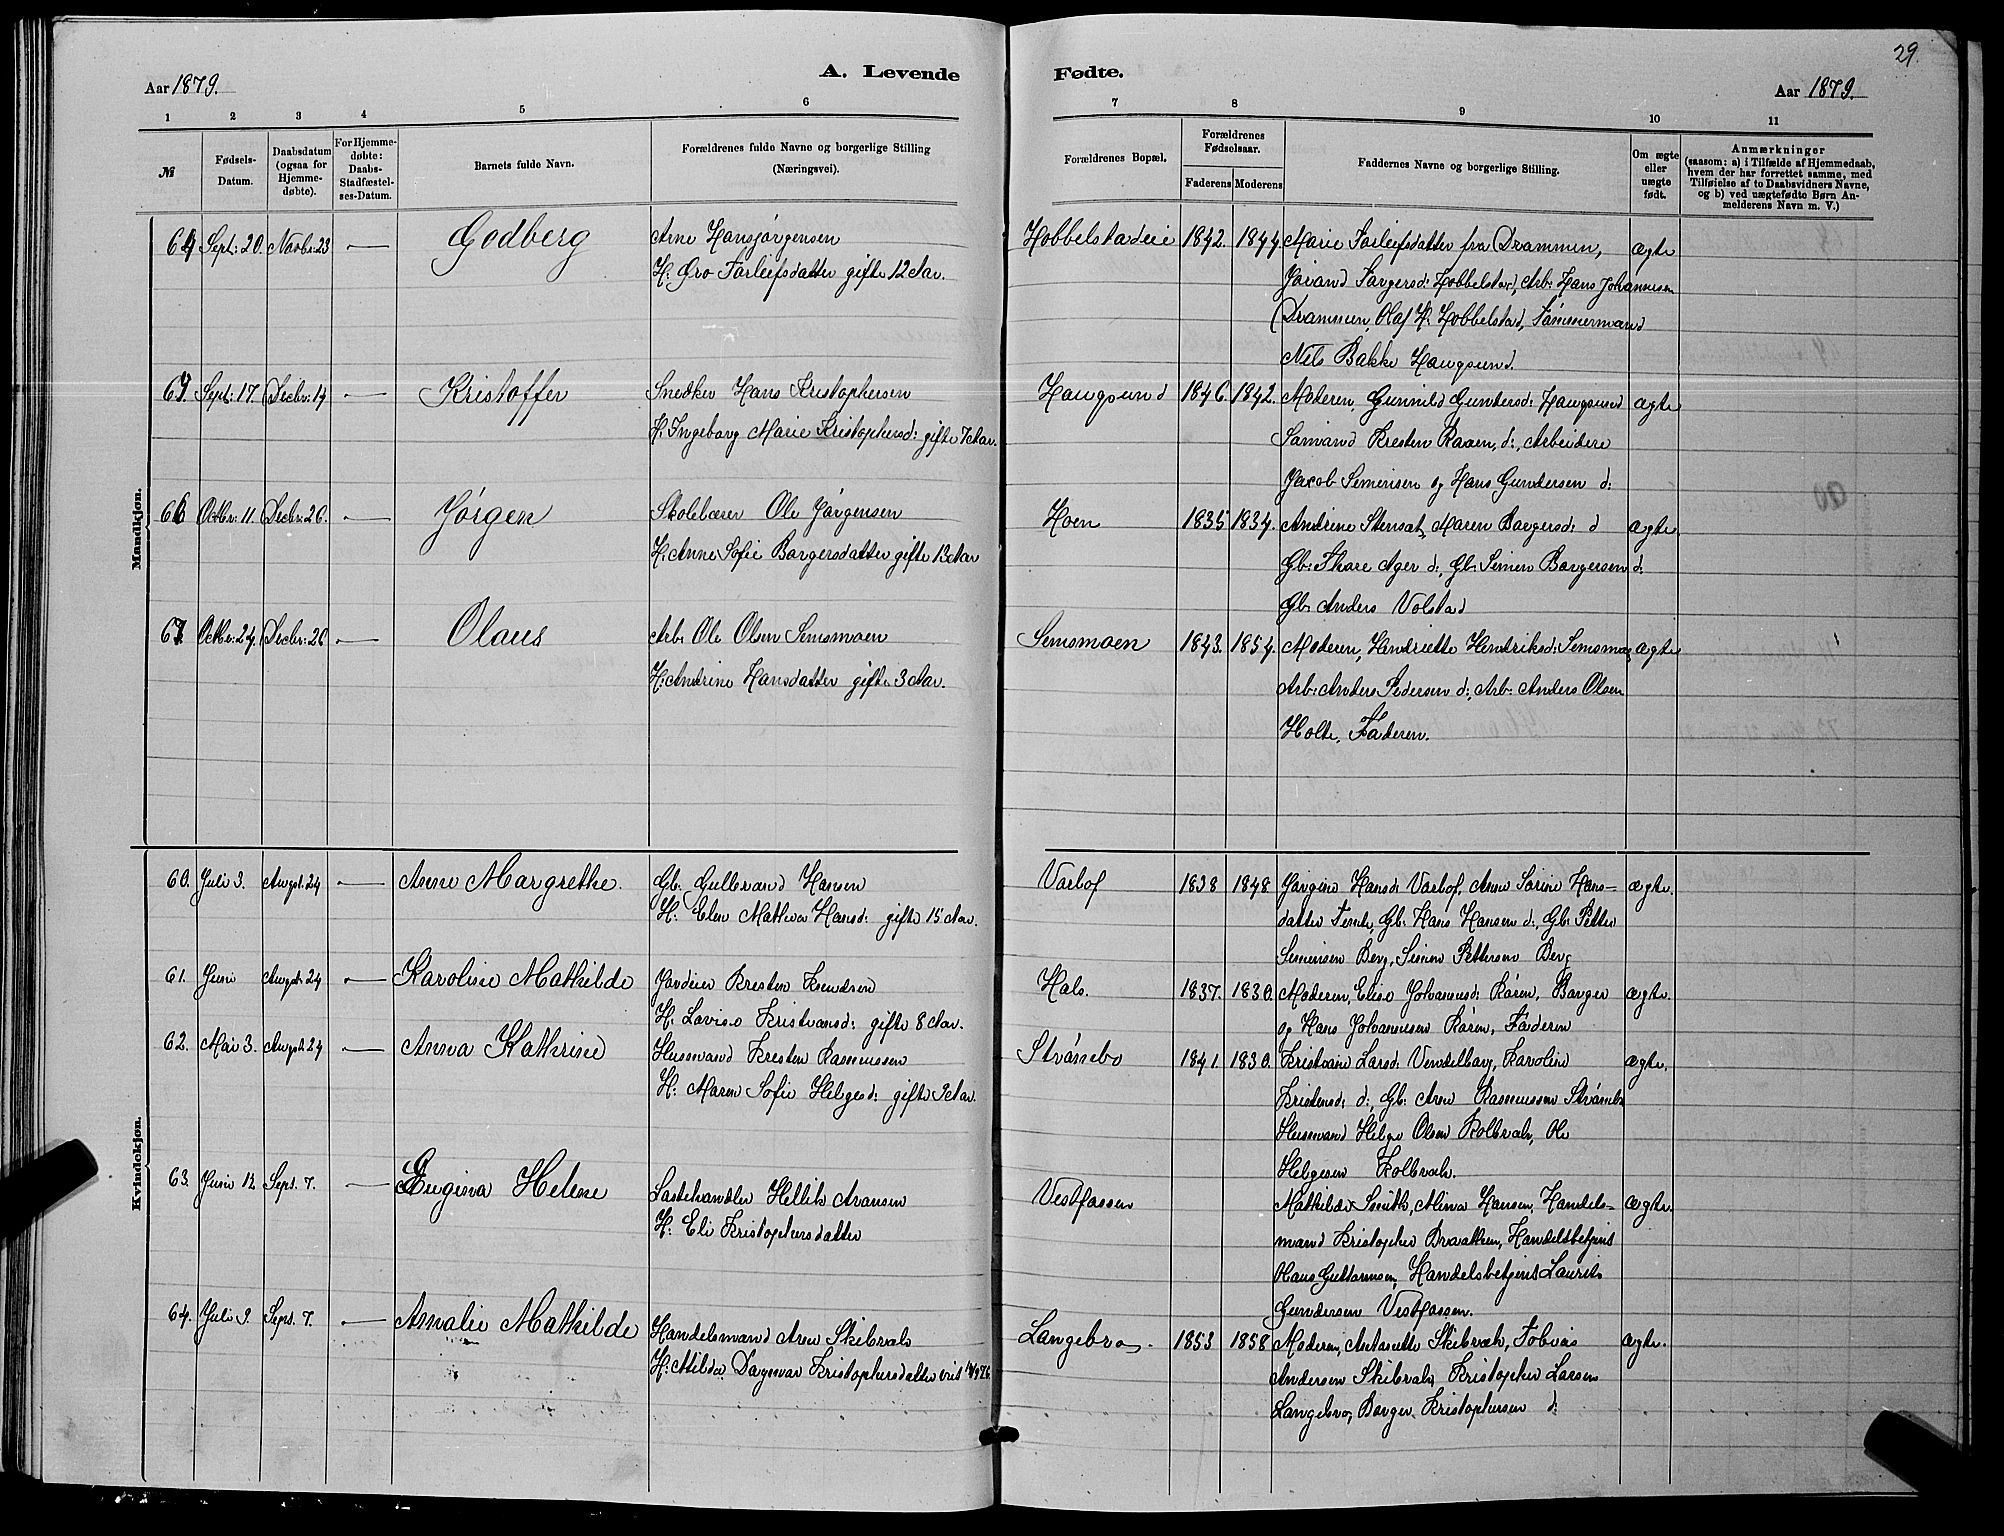 29.
A. Levende Fødte.
Aar 1879.
Aar 1879.
1 2 3 4 5 6 7 8 9 10 11
№
Fødsels-Datum.
Daabsdatum (ogsaa for Hjemme-døbte).
For Hjemme-døbte: Daabs-Stadfæstel-ses-Datum.
Barnets fulde Navn.
Forældrenes fulde Navne og borgerlige Stilling
(Næringsvei).
Forældrenes Bopæl.
Forældrenes Fødselsaar.
Faderens Moderens
Faddernes Navne og borgerlige Stilling.
Om ægte eller uægte født.
Anmærkninger
(saasom: a) i Tilfælde af Hjemmedaab,
hvem der har forrettet samme, med
Tilføielse af to Daabsvidners Navne,
og b) ved uægtefødte Børn An-
melderens Navn m. V.)
Mandkjøn.
64 Sept: 20. Novbr: 23 — Godberg Arne Hansjørgensen Hobbelstadeie 1842. 1844 Marie Torleifsdatter fra Drammen, ægte
H: Gro Torleifsdatter gifte 12 Aar. Hobbelstad, Arb: Hans Johannesen
Drammen, Olaf H. Hobbelstad, Tømmermand
Nils Bakke Haugsund.
Sept: 17. Decbr: 14 — Kristoffer Snedker Hans Kristophersen Haugsund 1846. 1842. Moderen, Gunnild Gundersd: Haugsund ægte
H. Ingeborg Marie Kristophersd: gifte 7 Aar. Kresten Raaen, d:, Arbeidere
Jacob Simensen og Hans Gundersen d:
66 Octbr: 11. Decbr: 26. — Jørgen Skolelærer Ole Jørgensen Hoen 1835 1834. Andrine Stensat, Maren Borgersd: d ægte
H: Anne Sofie Borgersdatter gifte 13 Aar Gb: Thore Ager d:, Gb: Simen Borgersen d:
Gb: Anders Volstad
67 Octbr: 24. Decbr: 26 — Olaus Arb: Ole Olsen Semsmoen Semsmoen 1843. 1854. Moderen, Hendriette Hendriksd: Semsmoe, ægte
H: Andrine Hansdatter gifte 3 Aar. Arb: Anders Pedersen d:, Arb: Anders Olsen
Holte, Faderen.
Kvindekjøn.
60. Juli 3. Augst. 24 — Anne Margrethe. Gb: Gulbrand Hansen Varlof 1838 1848 Jørgine Hansd: Varlof, Anne Sorine Hans- ægte.
H: Elen Mathea Hansd: gifte 15 Aar. datter Temte, Gb: Hans Hansen d:, Gb: Petter
Simensen Berg, Simon Pettersen Berg
61. Juni Augst. 24 — Karoline Mathilde Kresten Knudsen Hals. 1837. 1830. Moderen, Elise Johannesd: Køren, Borger ægte.
H. Lovise Kristiansd: gifte 8 Aar. og Hans Johannesen Køren, Faderen
62. Mai 3. Augst. 24 — Anna Kathrine Husmand Kresten Rasmussen Strømbo 1841. 1830. Kristiane Larsd: Vendelborg, Karoline ægte.
H: Maren Sofie Helgesd: gifte 3 Aar. Kristensd: d:, Gb: Aren Rasmussen Strømbo
Husmand Helge Olsen Kolbræk, Ole
Helgesen Kolbræk.
63. Juni 12 Sept. 7. — Eugina Helene Lastehandler Hellik Aronsen Vestfossen Mathilde Smith, Mina Hansen, Handels- ægte.
H: Eli Kristophersdatter mand Kristopher Braathen, Handelsbetjent
Hans Guttormsen, Handelsbetjent Laurits
Gundersen Vestfossen.
64. Juli 9. Sept. 7. — Amalie Mathilde Handelsmand Aren Skibræk Langebro. 1853 1858 Moderen, Antonette Skibræk, Tobias ægte.
H: Milda Dagmar Kristophersdatter Andersen Skibræk, Kristopher Larsen
Langebro, Borger Kristophersen d: